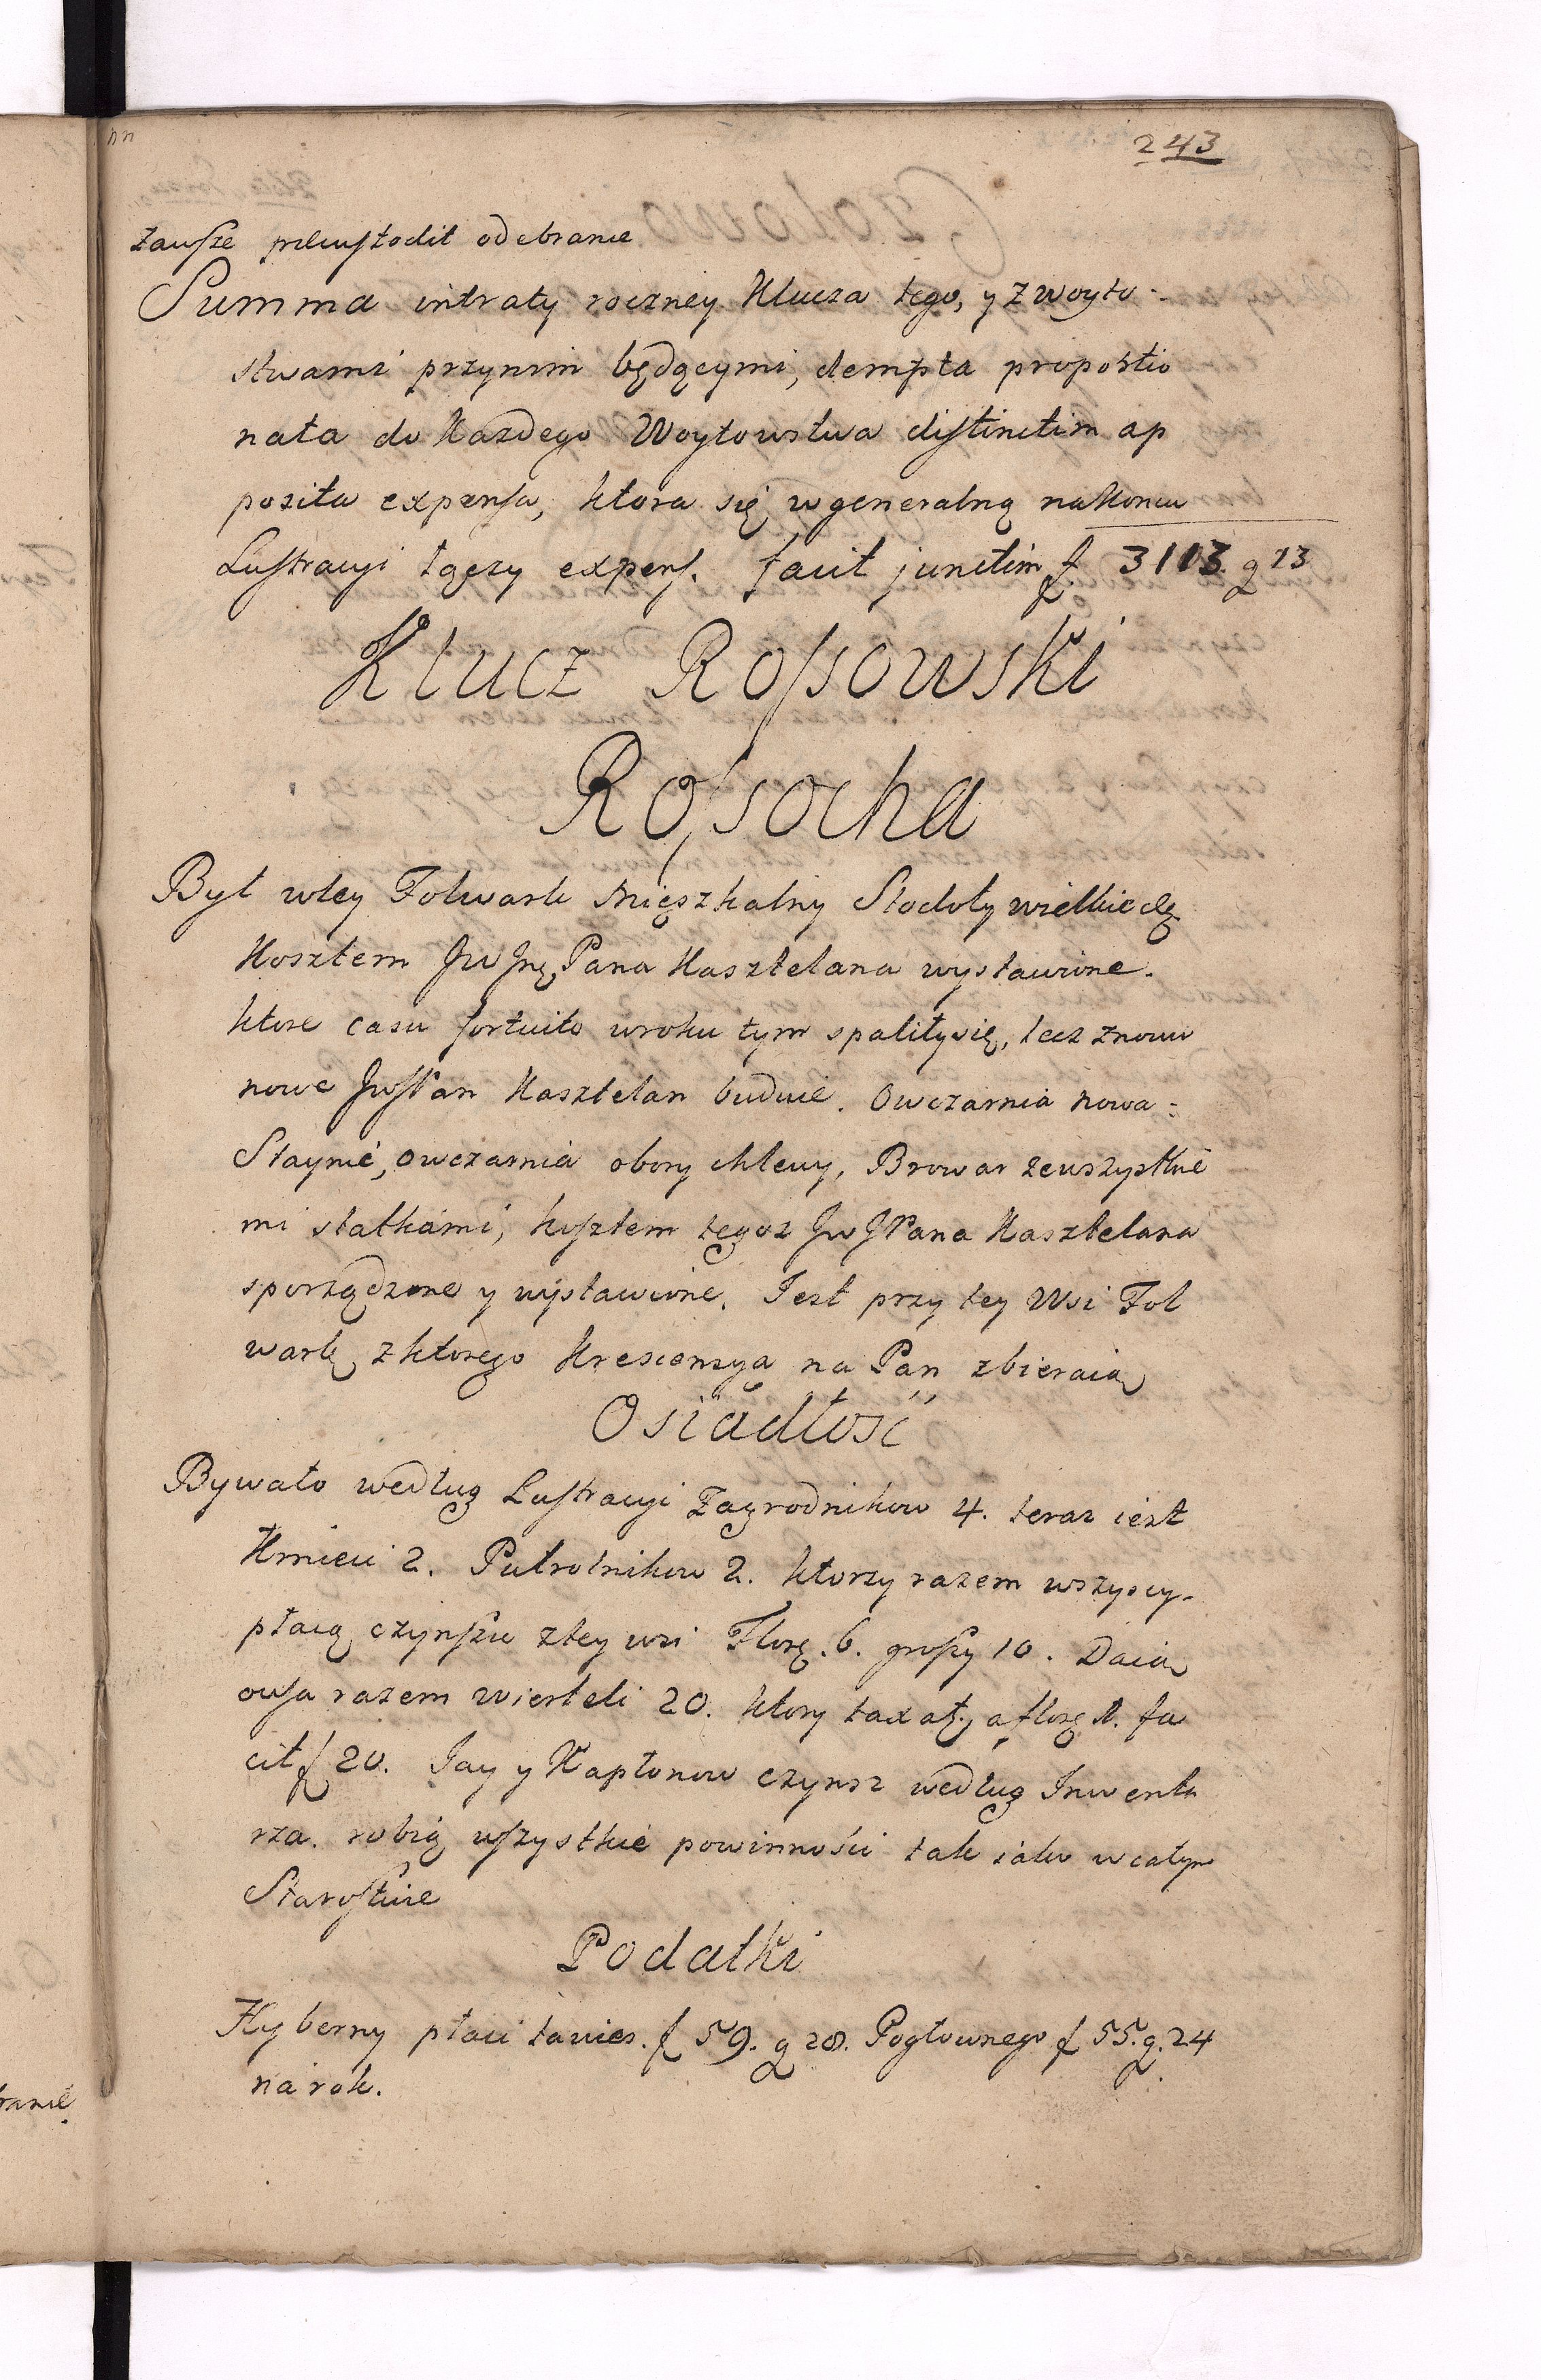 243
zawsze odebranie
Summa intraty roczney Klucza tego, y z Woyto-
stwami przynim będącymi, dempta proportio
nata do Kazdego Woytowstwa distinctim ap
posita expensa, ktora się w generalną na Koncu
Lustracyi łączy expens. facit junctim f. 3113. g 13
Klucz Rossowski
Rossocha
Był wtey Folwark Mięszkalny Stodoły wielkie
Kosztem Jw Pana Kasztelana wystawione.
ktore casu fortuito wroku tym spaliły się, lecz znowu
nowe Pan Kasztelan buduie. Owczarnia nowa:
Staynie, owczarnia obory chlewy, Browar zewszystkie
mi statkami, kosztem tegoz Jw JPana Kasztelana
sporządzone y wystawione. Jest przy tey Wsi Fol
wark, zktorego Krescensya na Pan zbieraią
Osiadłość
Bywało według Lustracyi Zagrodnikow 4. teraz iest
Kmieci 2. Pułrolnikow 2. ktorzy razem wszyscy.
płacą czynszu ztey wsi Flor. 6. groszy 10. Daią
owsa razem wierteli 20. ktory taxat. a flor 1. fa
cit f 20. Jay y Kapłonow czynsz według Inwenta
rza. robią wszystkie powinności tak iako w całym
Starostwie
Podatki
Hyberny płaci tawies. f 59. g 28. Pogłownego f 55. g. 24
na rok.